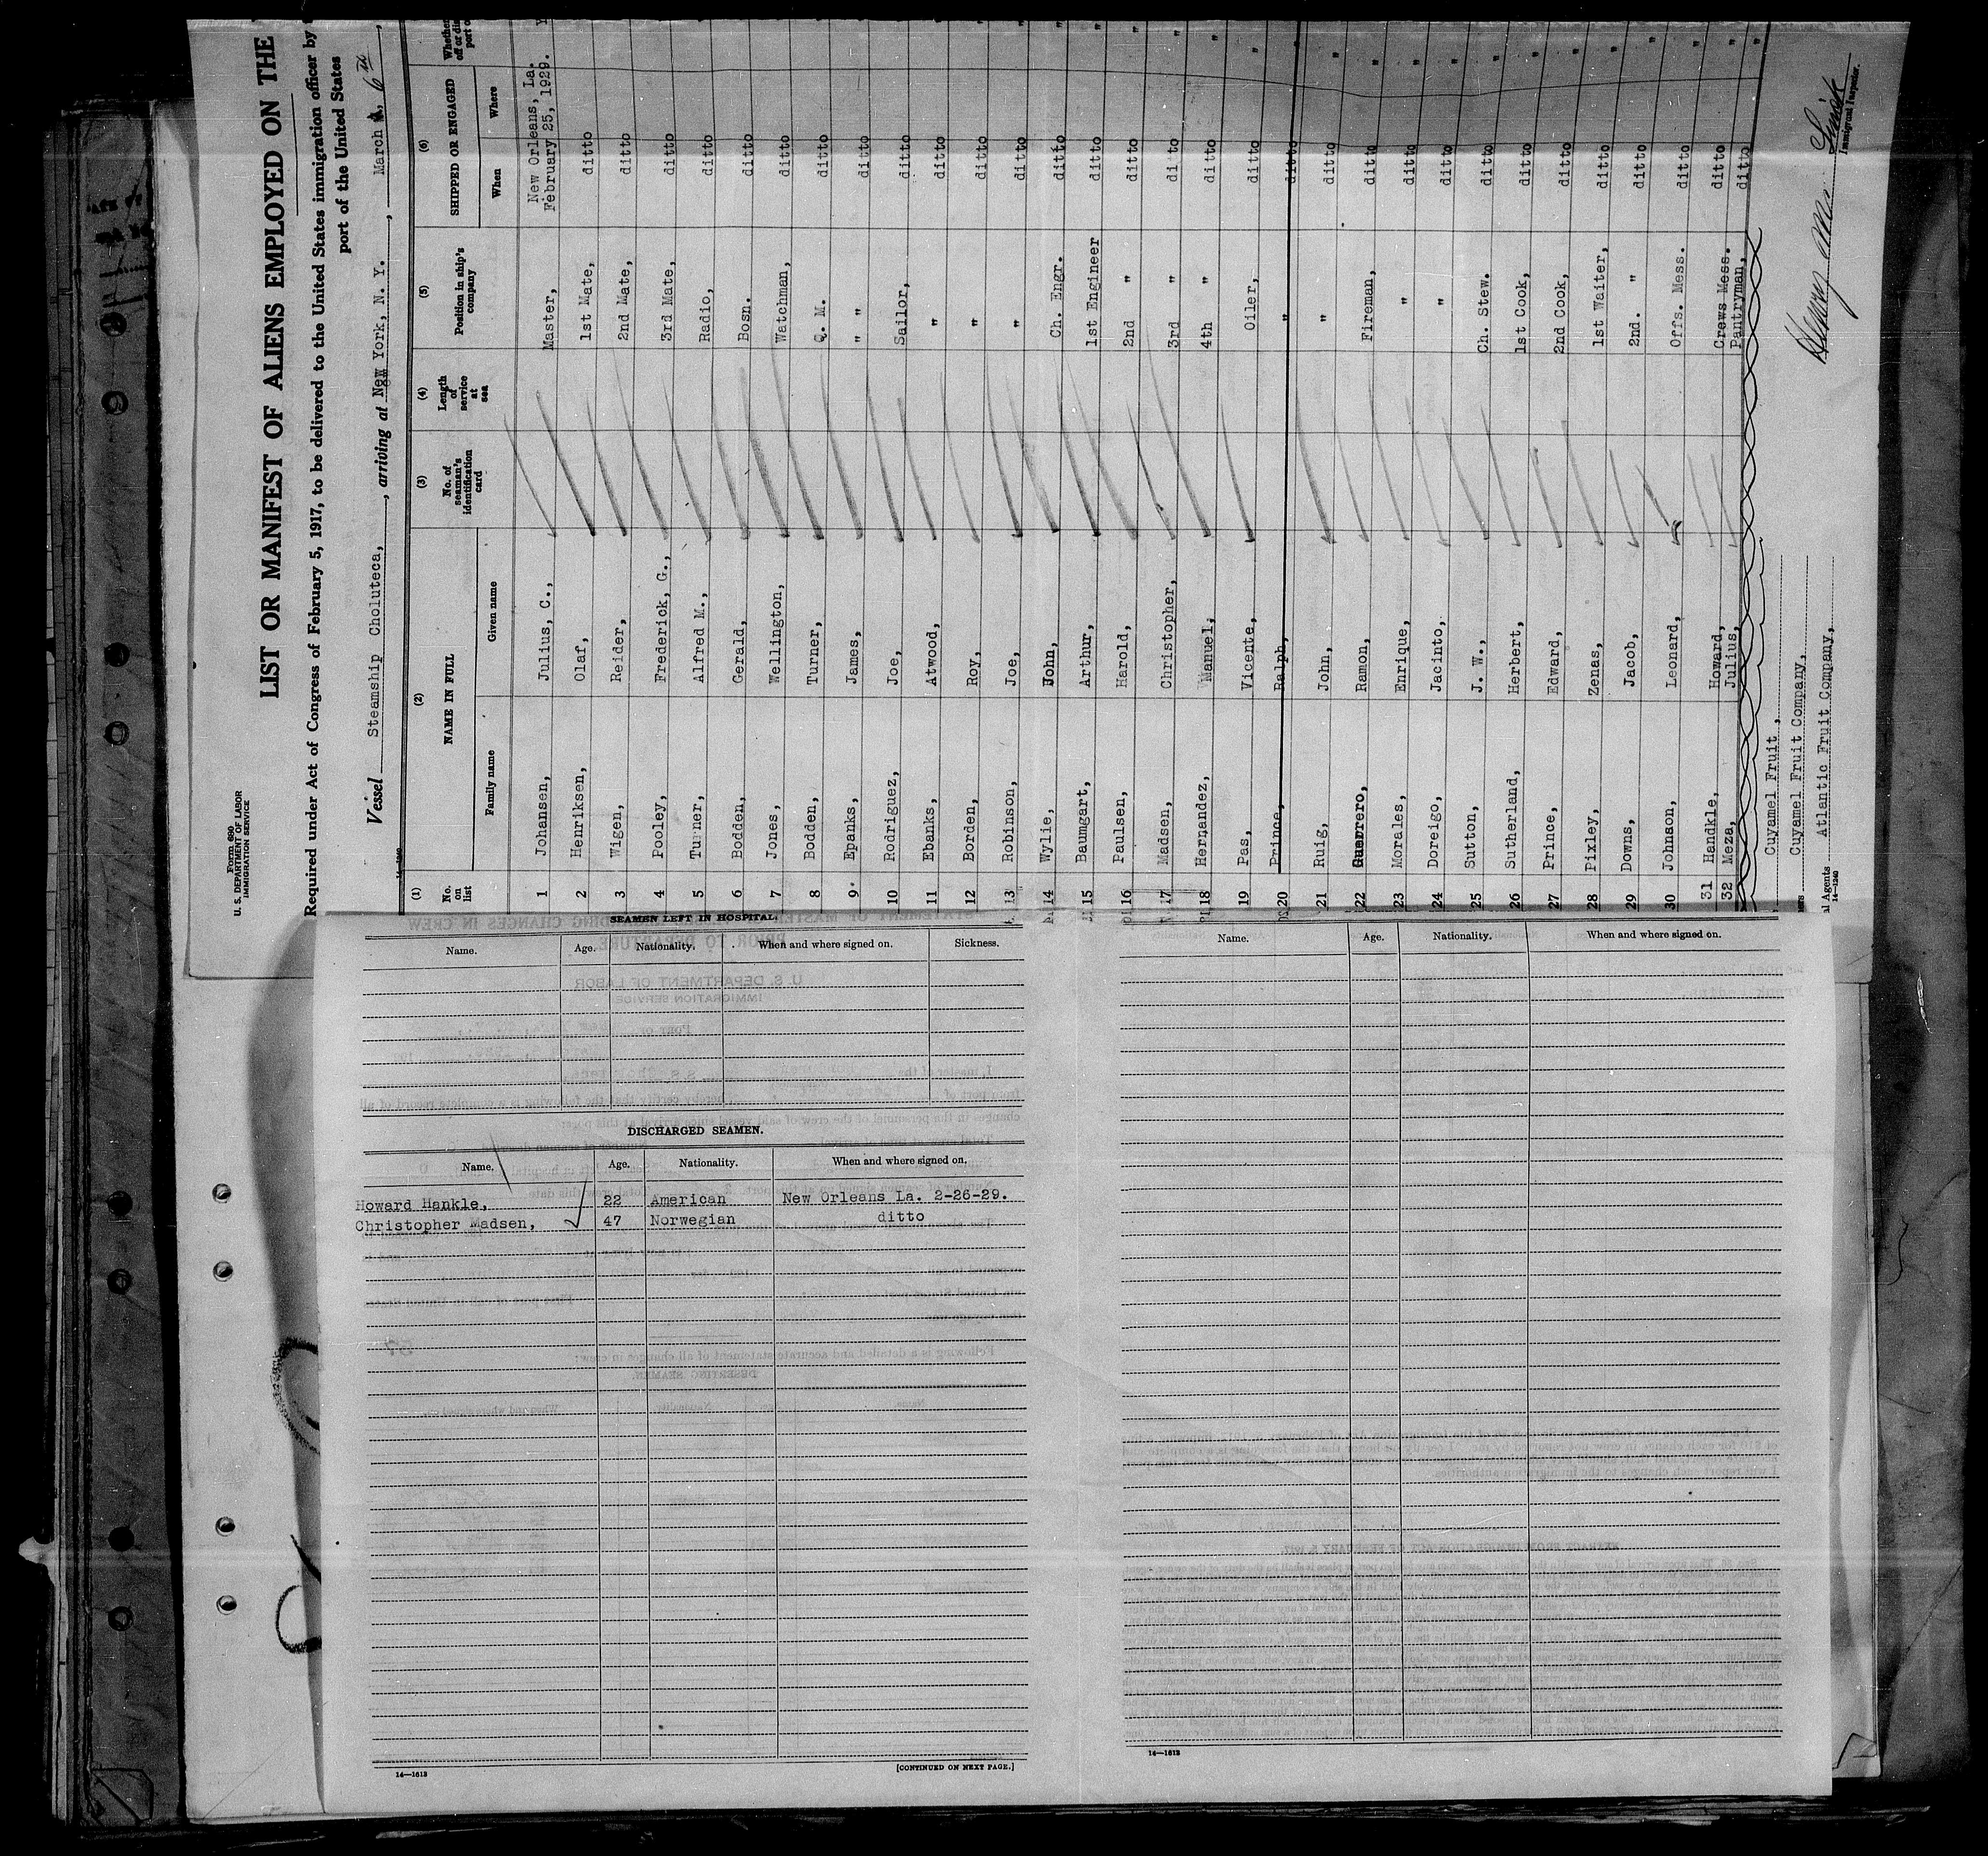 Form 690
U. S. DEPARTMENT OF LABOR
IMMIGRATION SERVICE
LIST OR MANIFEST OF ALIENS EMPLOYED ON THE
Required under Act of Congress of February 5, 1917, to be delivered to the United States immigration officer by
port of the United States
Vessel Steamship Choluteca, arriving at New York, N. Y., March 6th,
14-1240
(1) (2) (3) (4) (5) (6)
No. on list NAME IN FULL No. of seaman's identification card Length of service at sea Position in ship's company SHIPPED OR ENGAGED
Family name Given name When Where
New Orleans, La.
1 Johansen, Julius, C., Master, February 25, 1929.
2 Henriksen, Olaf, 1st Mate, ditto "
3 Wigen, Reider, 2nd Mate, ditto "
4 Pooley, Frederick, G., 3rd Mate, ditto "
5 Turner, Alfred M., Radio, ditto "
6 Bodden, Gerald, Bosn. ditto "
7 Jones, Wellington, Watchman, ditto "
8 Bodden, Turner, Q. M. ditto "
9 Epanks, James, " " ditto "
10 Rodriguez, Joe, Sailor, ditto "
11 Ebanks, Atwood, " ditto "
12 Borden, Roy, " ditto "
13 Robinson, Joe, " ditto "
14 Wylie, John, Ch. Engr. ditto "
15 Baumgart, Arthur, 1st Engineer ditto "
16 Paulsen, Harold, 2nd " ditto "
17 Madsen, Christopher, 3rd " ditto "
18 Hernandez, Manuel, 4th " ditto "
19 Pas, Vicente, Oiler, ditto "
20 Prince, Ralph, " ditto "
21 Ruig, John, " ditto "
22 Guerrero, Ramon, Fireman, ditto "
23 Morales, Enrique, " ditto "
24 Doreigo, Jacinto, " ditto "
25 Sutton, J. W., Ch. Stew. ditto "
26 Sutherland, Herbert, 1st Cook, ditto "
27 Prince, Edward, 2nd Cook, ditto "
28 Pixley, Zenas, 1st Waiter, ditto "
29 Downs, Jacob, 2nd. " ditto "
30 Johnson, Leonard, Offs. Mess. ditto "
31 Handkle, Howard, Crews Mess. ditto "
32 Meza, Julius, Pantryman, ditto "
Cuyamel Fruit,
Cuyamel Fruit Company,
al Agents Atlantic Fruit Company,
14-1240
Immigrant Inspector.
SEAMEN LEFT IN HOSPITAL.
Name. Age. Nationality. When and where signed on. Sickness.
DISCHARGED SEAMEN.
Name. Age. Nationality. When and where signed on.
Howard Hankle, 22 American New Orleans La. 2-26-29.
Christopher Madsen, 47 Norwegian ditto
14-1613
[CONTINUED ON NEXT PAGE.]
Name. Age. Nationality. When and where signed on.
14-1613